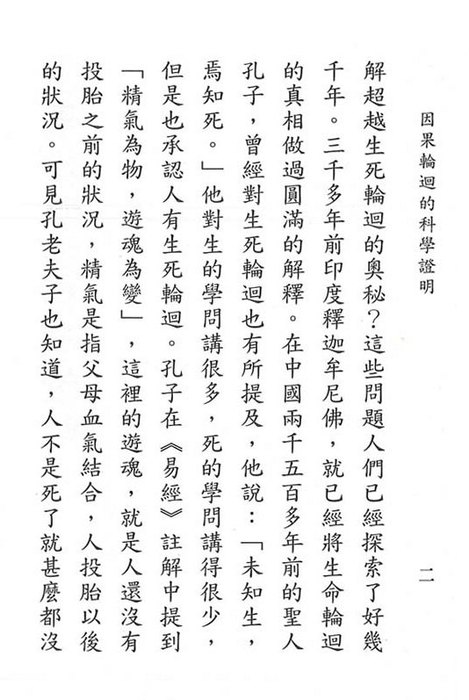 因果輪迴的科學證明
二
解超越生死輪迴的奧秘？這些問題人們已經探索了好幾
千年。三千多年前印度釋迦牟尼佛，就已經將生命輪迴
的真相做過圓滿的解釋。在中國兩千五百多年前的聖人
孔子，曾經對生死輪迴也有所提及，他說：「未知生，
焉知死。」他對生的學問講很多，死的學問講得很少，
但是也承認人有生死輪迴。孔子在《易經》註解中提到
「精氣為物，遊魂為變」，這裡的遊魂，就是人還沒有
投胎之前的狀況，精氣是指父母血氣結合，人投胎以後
的狀況。可見孔老夫子也知道，人不是死了就甚麼都沒